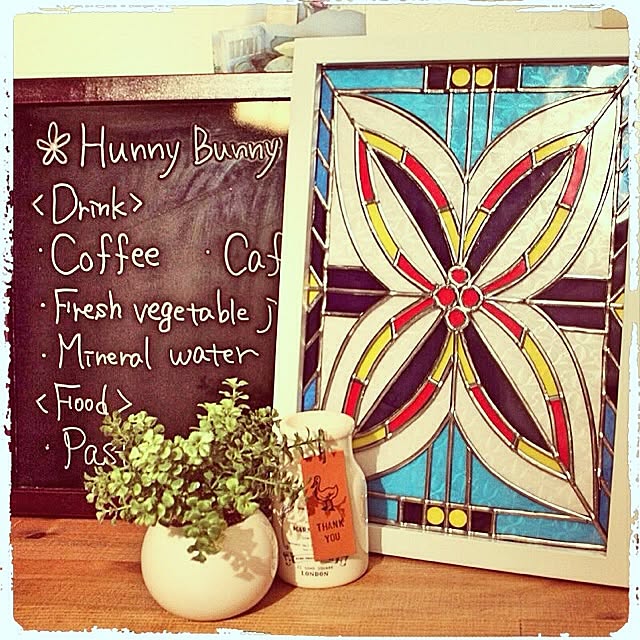 Hunny Bunny
<Drink>
・Coffee ・Caf
・Fresh vegetable j
・Mineral water
<Food>
・Pas
THANK
YOU
LONDON